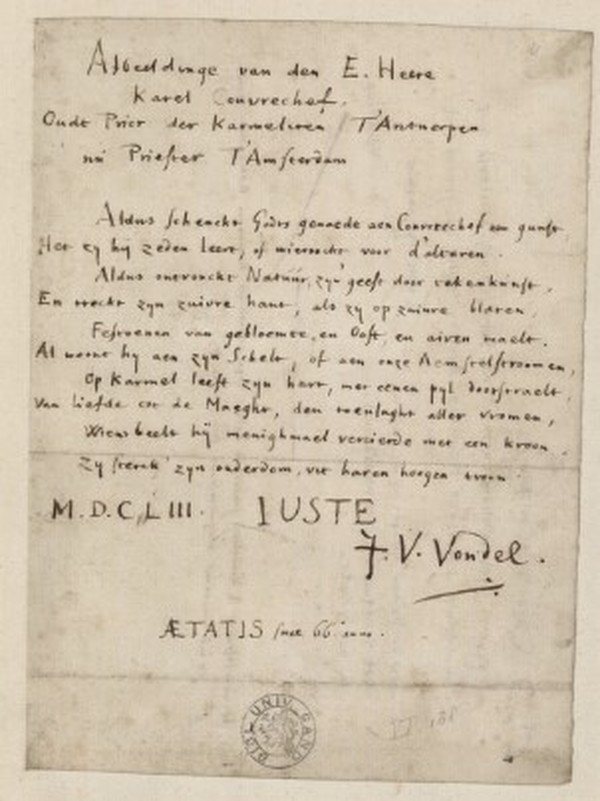 Afbeeldinge van den E. Heere
Karel Couvrechef.
Oudt Prior der Karmeliten T'Antwerpen
nu Priester T'Amsterdam
Aldus schenckt Godts genaede aen Couvrechef een gunst,
Het zy hij zeden leert, of wieroockt voor d'altaren.
Aldus ontvonckt Natuur zyn geest door tekenkunst,
En treckt zyn zuivre hant, als zy op zuivre blaren,
Festoenen van gebloemte, en Ooft, en airen maelt.
Al woont hy aen zyn Schelt, of aen onze Aemstelstroomen,
Op Karmel leeft zyn hart, met eenen pyl doorstraelt,
Van liefde tot de Maeght, den toevlught aller vromen,
Wiens beelt hij menighmael vercierde met een kroon.
Zy sterck' zyn ouderdom, uit haren hoogen troon.
M.D.C.LIII. IUSTE
J. V. Vondel.
ÆTATIS suae 66 anno.
BIBL. UNIV. GAND